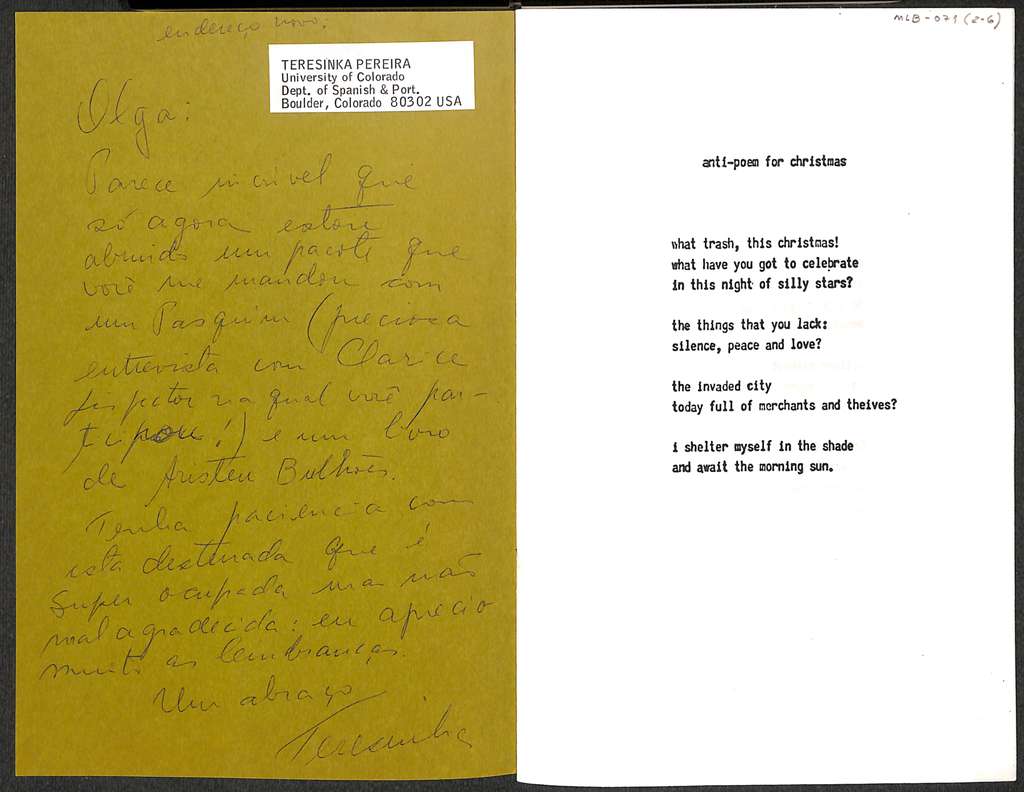 endereço novo:
TERESINKA PEREIRA
University of Colorado
Dept. of Spanish & Port.
Boulder, Colorado 80302 USA
Olga:
Parece incrível que
só agora estou
abrindo um pacote que
você me mandou com
um Pasquim (preciosa
entrevista com Clarice
Lispector na qual você par-
ticipou!) e um livro
de Aristeu Bulhões.
Tenha paciência com
esta desterrada que é
super ocupada mas não
mal agradecida: eu aprecio
muito as lembranças.
Um abraço
Teresinka
MLB-071 (2-6)
anti-poem for christmas
what trash, this christmas!
what have you got to celebrate
in this night of silly stars?
the things that you lack:
silence, peace and love?
the invaded city
today full of merchants and theives?
i shelter myself in the shade
and await the morning sun.